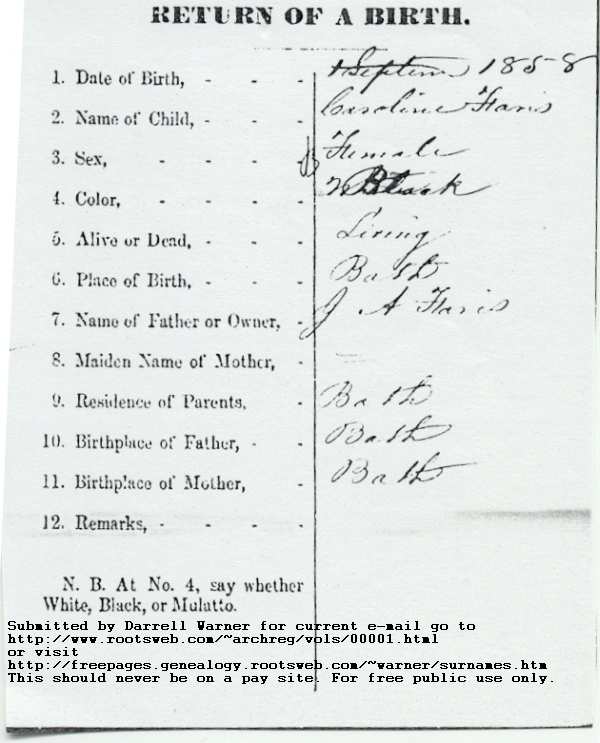 RETURN OF A BIRTH.
1. Date of Birth, - - - Septem 1858
2. Name of Child, - - - Caroline Faris
3. Sex, - - - - Female
4. Color, - - - - Black
5. Alive or Dead, - - - Living
6. Place of Birth, - - - Bath
7. Name of Father or Owner, - J A Faris
8. Maiden Name of Mother, -
9. Residence of Parents, - Bath
10. Birthplace of Father, - - Bath
11. Birthplace of Mother, - Bath
12. Remarks, - - - -
N. B. At No. 4, say whether
White, Black, or Mulatto.
Submitted by Darrell Warner for current e-mail go to
http://www.rootsweb.com/~archreg/vols/00001.html
or visit
http://freepages.genealogy.rootsweb.com/~warner/surnames.htm
This should never be on a pay site. For free public use only.